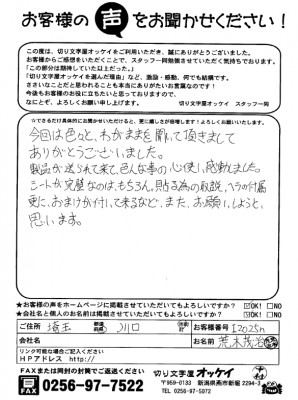 お客様の声をお聞かせください！
この度は、切り文字屋オッケイをご利用いただき、誠にありがとうございました。
お客様からご感想をいただくことで、スタッフ一同勉強させていただく気持ちでおります。
「この部分は期待していた以上だった。」
「切り文字屋オッケイを選んだ理由」など、激励・感動、何でも結構です。
ささいなことだと思われることも本当にありがたいお言葉なのです！
今後もお客様のお役に立ちたいと思っておりますので、
なにとぞ、よろしくお願い申し上げます。 切り文字屋オッケイ スタッフ一同
☆できるだけ具体的にお聞かせいただけると、更に嬉しさが倍増します！よろしくお願いいたします。
今回は色々と、わがままを聞いて頂きまして
ありがとうございました。
製品が送られて来て、色んな事の心使い、感動しました。
シートが完璧なのは、もちろん、貼る為の取説、ヘラの付属
更に、おまけが付いて来るなど、また、お願いしようと、
思います。
★お客様の声をホームページに掲載させていただいてもよろしいですか？ OK! NO
★会社名と個人のお名前は掲載させていただいてもよろしいですか？ OK! NO
ご住所 埼玉 都道府県 川口 市 お客様番号
会社名 お名前 荒木茂治
リンク可能な場合ご記入ください。
HPアドレス http://
FAXまたは同封の封筒でご返送ください
FAX 0256-97-7522
切り文字屋オッケイ
〒959-0133 新潟県燕市新堀 2294-3
TEL 0256-97-5072